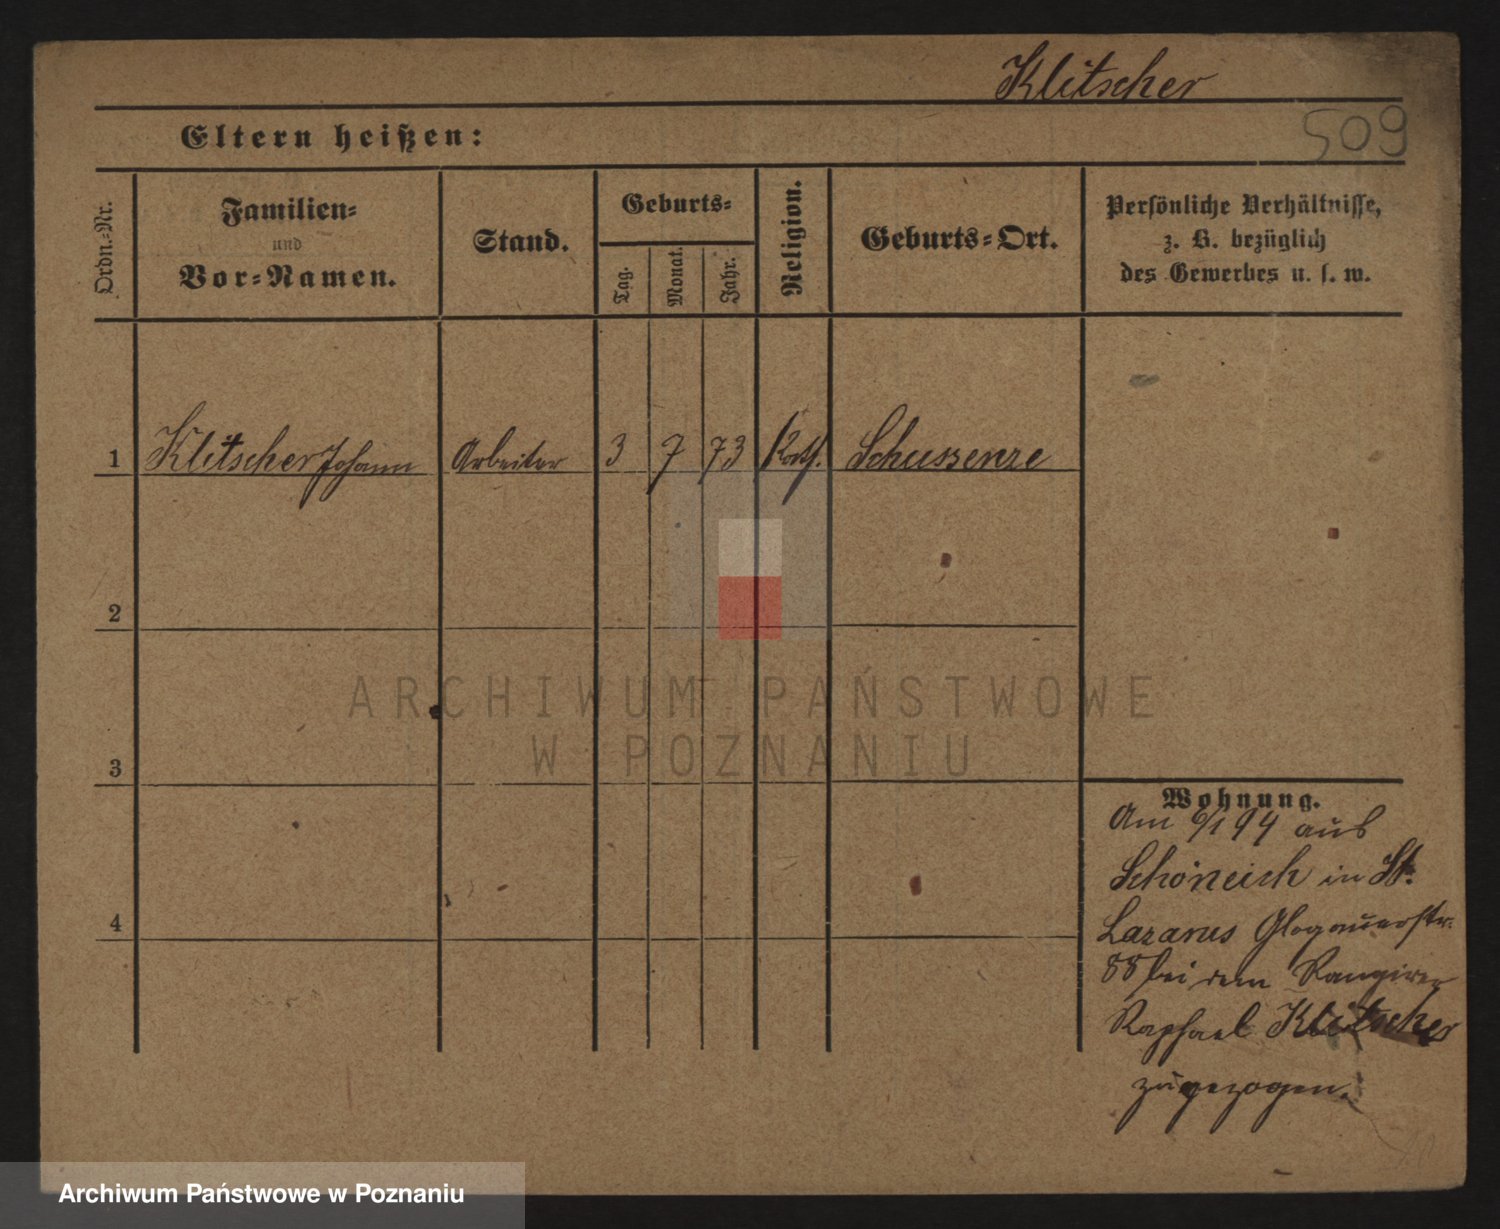 Klitscher
509
Eltern heißen:
Ordn.=Nr.
Familien=
und
Vor=Namen.
Stand.
Geburts=
Tag.
Monat.
Jahr.
Religion.
Geburts=Ort.
Persönliche Verhältnisse,
z. B. bezüglich
des Gewerbes u. s. w.
1 Klitscher Johann Arbeiter 3 7 73 Kath. Schussenze
2
3
4
Wohnung.
Am 6/1 94 aus
Schöneich in St.
Lazarus Glogauerstr.
88 bei dem Rangirer
Raphael Klitscher
zugezogen.
ARCHIWUM PAŃSTWOWE
W POZNANIU
Archiwum Państwowe w Poznaniu